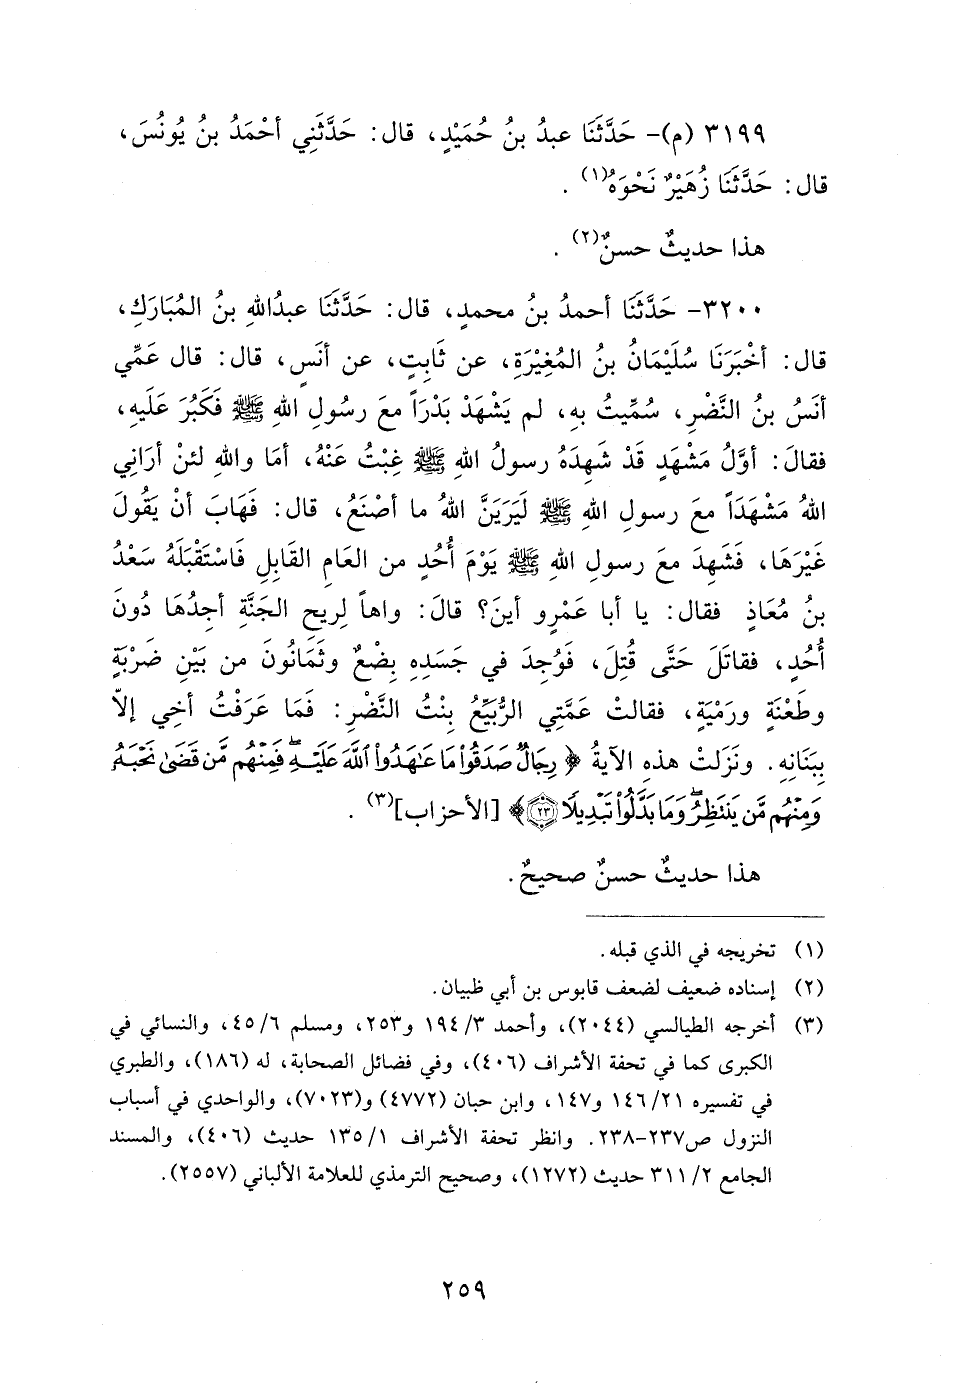 ٣١٩٩ (م)- حَدَّثَنَا عبدُ بنُ حُمَيْدٍ، قال: حَدَّثَنِي أحْمَدُ بنُ يُونُسَ،
قال: حَدَّثَنَا زُهَيْرٌ نَحْوَهُ(١) .
هذا حديثٌ حسنٌ(٢) .
٣٢٠٠- حَدَّثَنَا أحمدُ بنُ محمدٍ، قال: حَدَّثَنَا عبدُاللهِ بنُ المُبَارَكِ،
قال: أخْبَرَنَا سُلَيْمَانُ بنُ المُغِيْرَةِ، عن ثَابِتٍ، عن أنَسٍ، قال: قال عَمِّي
أنَسُ بنُ النَّضْرِ، سُمِّيتُ بهِ، لم يَشْهَدْ بَدْرَاً معَ رسُولِ اللهِ ﷺ فَكَبُرَ عَلَيهِ،
فقالَ: أوَّلُ مَشْهَدٍ قَدْ شَهِدَهُ رسولُ اللهِ ﷺ غِبْتُ عَنْهُ، أمَا واللهِ لئنْ أرَانِي
اللهُ مَشْهَدَاً معَ رسولِ اللهِ ﷺ لَيَرَيَنَّ اللهُ ما أصْنَعُ، قال: فَهَابَ أنْ يَقُولَ
غَيْرَهَا، فَشَهِدَ معَ رسولِ اللهِ ﷺ يَوْمَ أُحُدٍ من العَامِ القَابِلِ فَاسْتَقْبَلَهُ سَعْدُ
بنُ مُعَاذٍ فقال: يا أبا عَمْرٍو أينَ؟ قالَ: واهاً لِريحِ الجَنَّةِ أجِدُهَا دُونَ
أُحُدٍ، فقاتَلَ حَتَّى قُتِلَ، فَوُجِدَ في جَسَدِهِ بِضْعٌ وثَمَانُونَ من بَيْنِ ضَرْبَةٍ
وطَعْنَةٍ ورَمْيَةٍ، فقالتْ عَمَّتِي الرُّبَيِّعُ بِنْتُ النَّضْرِ: فَمَا عَرَفْتُ أخِي إلاّ
بِبَنَانِهِ. ونَزَلتْ هذهِ الآيةُ ﴿ رِجَالٌ صَدَقُوا۟ مَا عَـٰهَدُوا۟ ٱللَّهَ عَلَيْهِ ۖ فَمِنْهُم مَّن قَضَىٰ نَحْبَهُۥ
وَمِنْهُم مَّن يَنتَظِرُ ۖ وَمَا بَدَّلُوا۟ تَبْدِيلًا ٢٣﴾ [الأحزاب](٣) .
هذا حديثٌ حسنٌ صحيحٌ.
(١) تخريجه في الذي قبله.
(٢) إسناده ضعيف لضعف قابوس بن أبي ظبيان.
(٣) أخرجه الطيالسي (٢٠٤٤)، وأحمد ٣/ ١٩٤ و٢٥٣، ومسلم ٦/ ٤٥، والنسائي في
الكبرى كما في تحفة الأشراف (٤٠٦)، وفي فضائل الصحابة، له (١٨٦)، والطبري
في تفسيره ٢١/ ١٤٦ و١٤٧، وابن حبان (٤٧٧٢) و(٧٠٢٣)، والواحدي في أسباب
النزول ص٢٣٧-٢٣٨. وانظر تحفة الأشراف ١/ ١٣٥ حديث (٤٠٦)، والمسند
الجامع ٢/ ٣١١ حديث (١٢٧٢)، وصحيح الترمذي للعلامة الألباني (٢٥٥٧).
٢٥٩